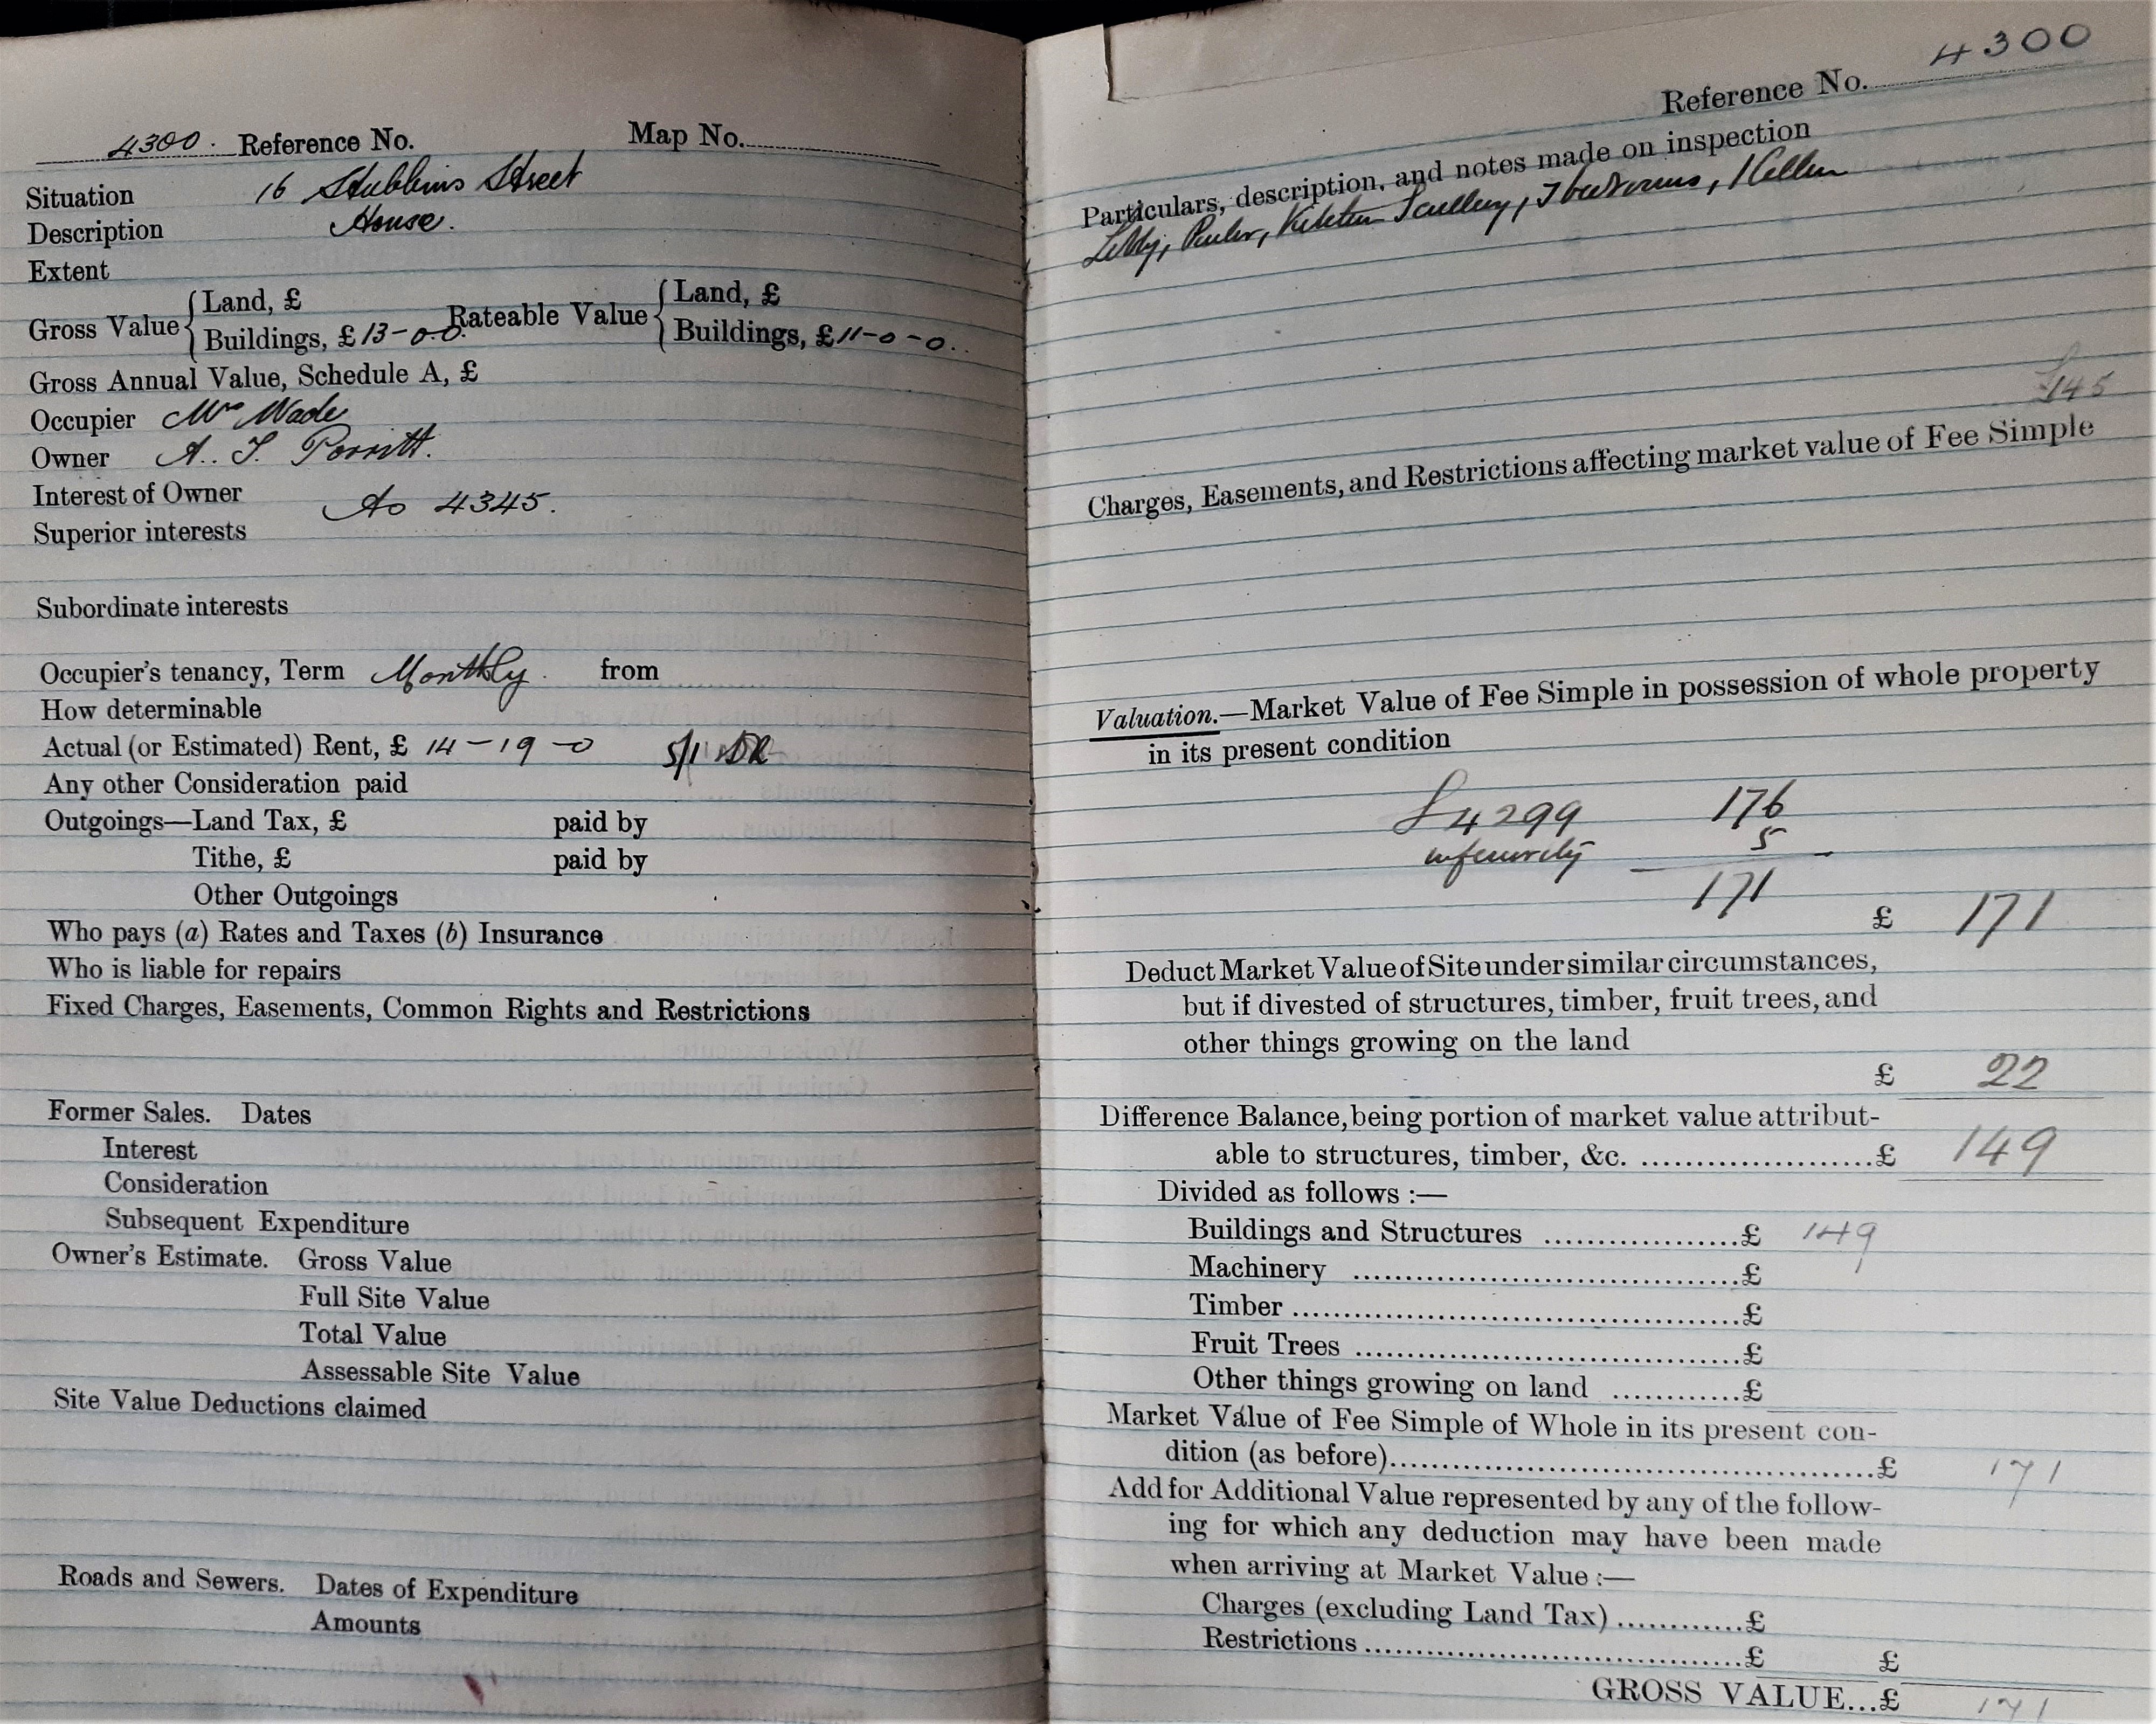 4300. Reference No. Map No.
Situation 16 Stubbins Street
Description House.
Extent
Gross Value { Land, £
Buildings, £ 13-0-0. Rateable Value { Land, £
Buildings, £ 11-0-0.
Gross Annual Value, Schedule A, £
Occupier Wade
Owner A. T. Porritt.
Interest of Owner
As 4345.
Superior interests
Subordinate interests
Occupier's tenancy, Term Monthly. from
How determinable
Actual (or Estimated) Rent, £ 14-19-0 5/1
Any other Consideration paid
Outgoings—Land Tax, £ paid by
Tithe, £ paid by
Other Outgoings
Who pays (a) Rates and Taxes (b) Insurance
Who is liable for repairs
Fixed Charges, Easements, Common Rights and Restrictions
Former Sales. Dates
Interest
Consideration
Subsequent Expenditure
Owner's Estimate. Gross Value
Full Site Value
Total Value
Assessable Site Value
Site Value Deductions claimed
Roads and Sewers. Dates of Expenditure
Amounts
Reference No. 4300
Particulars, description, and notes made on inspection
Lobby, Parlor, Kitchen Scullery, 3 bedrooms, 1 Cellar
£145
Charges, Easements, and Restrictions affecting market value of Fee Simple
Valuation.—Market Value of Fee Simple in possession of whole property
in its present condition
4299 176
inferiority 5
171
£ 171
Deduct Market Value of Site under similar circumstances,
but if divested of structures, timber, fruit trees, and
other things growing on the land
£ 22
Difference Balance, being portion of market value attribut-
able to structures, timber, &c. ......................£ 149
Divided as follows :—
Buildings and Structures ..................£ 149
Machinery ....................................£
Timber ..........................................£
Fruit Trees ....................................£
Other things growing on land ............£
Market Value of Fee Simple of Whole in its present con-
dition (as before)..............................................£ 171
Add for Additional Value represented by any of the follow-
ing for which any deduction may have been made
when arriving at Market Value :—
Charges (excluding Land Tax) ............£
Restrictions ....................................£ £
GROSS VALUE...£ 171